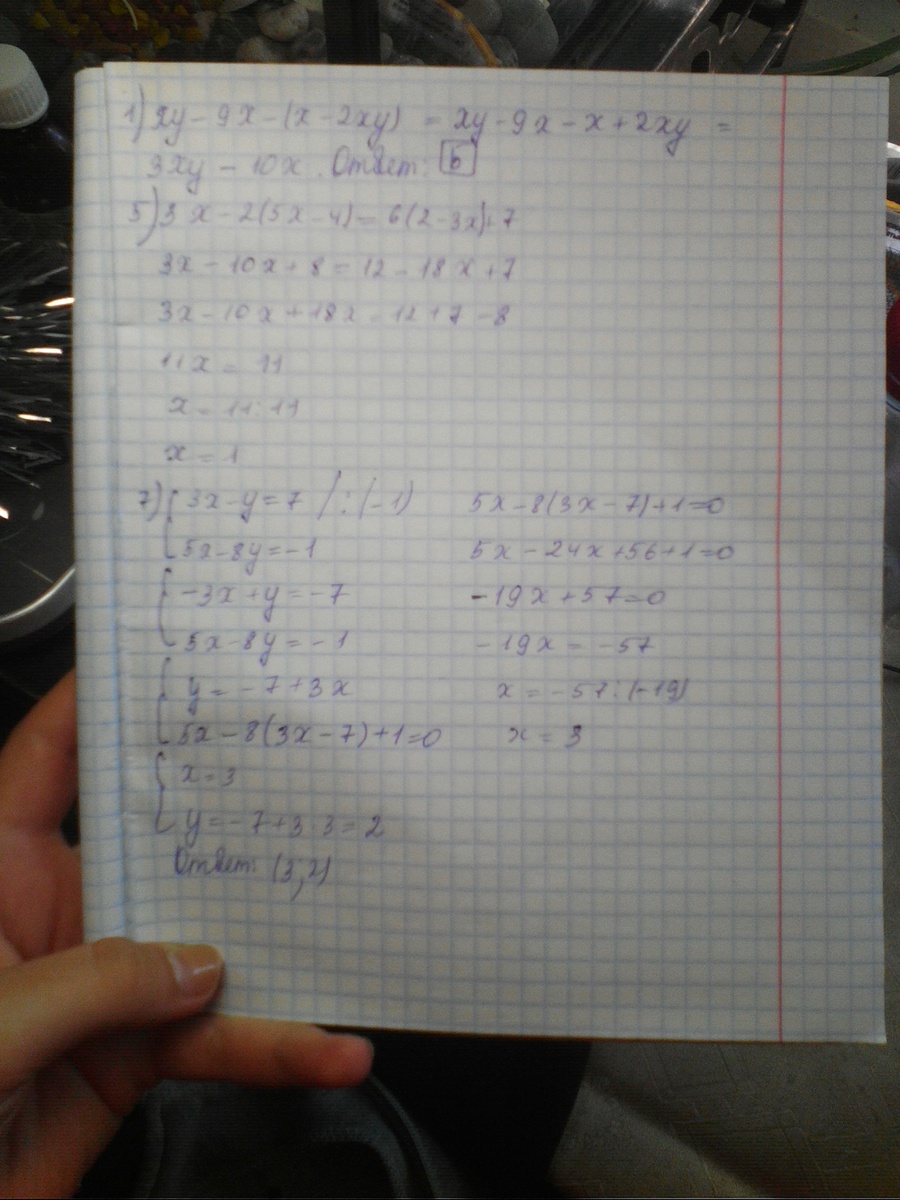 1) xy - 9x - (x - 2xy) = xy - 9x - x + 2xy =
3xy - 10x. Ответ: б
5) 3x - 2(5x - 4) = 6(2 - 3x) + 7
3x - 10x + 8 = 12 - 18x + 7
3x - 10x + 18x = 12 + 7 - 8
11x = 11
x = 11 : 11
x = 1
7) { 3x - y = 7 / : (-1)
5x - 8y = -1
{ -3x + y = -7
5x - 8y = -1
{ y = -7 + 3x
5x - 8(3x - 7) + 1 = 0
{ x = 3
y = -7 + 3 · 3 = 2
Ответ: (3; 2)
5x - 8(3x - 7) + 1 = 0
5x - 24x + 56 + 1 = 0
-19x + 57 = 0
-19x = -57
x = -57 : (-19)
x = 3